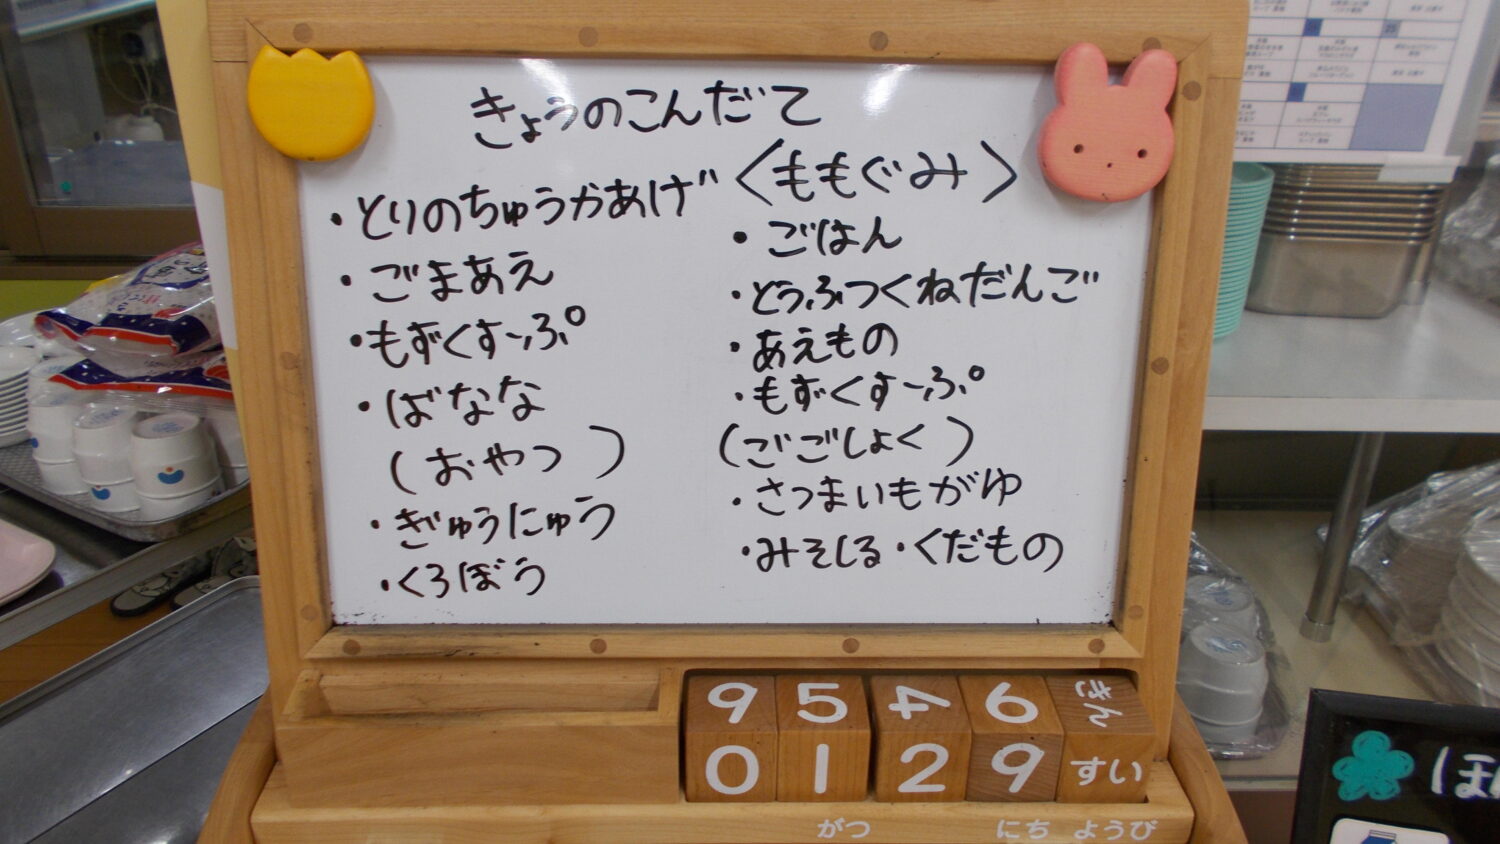 きょうのこんだて
・とりのちゅうかあげ
・ごまあえ
・もずくすーぷ
・ばなな
(おやつ)
・ぎゅうにゅう
・くろぼう
〈ももぐみ〉
・ごはん
・とうふつくねだんご
・あえもの
・もずくすーぷ
(ごごしょく)
・さつまいもがゆ
・みそしる・くだもの
9 5 4 6 きん
0 1 2 9 すい
がつ にち ようび